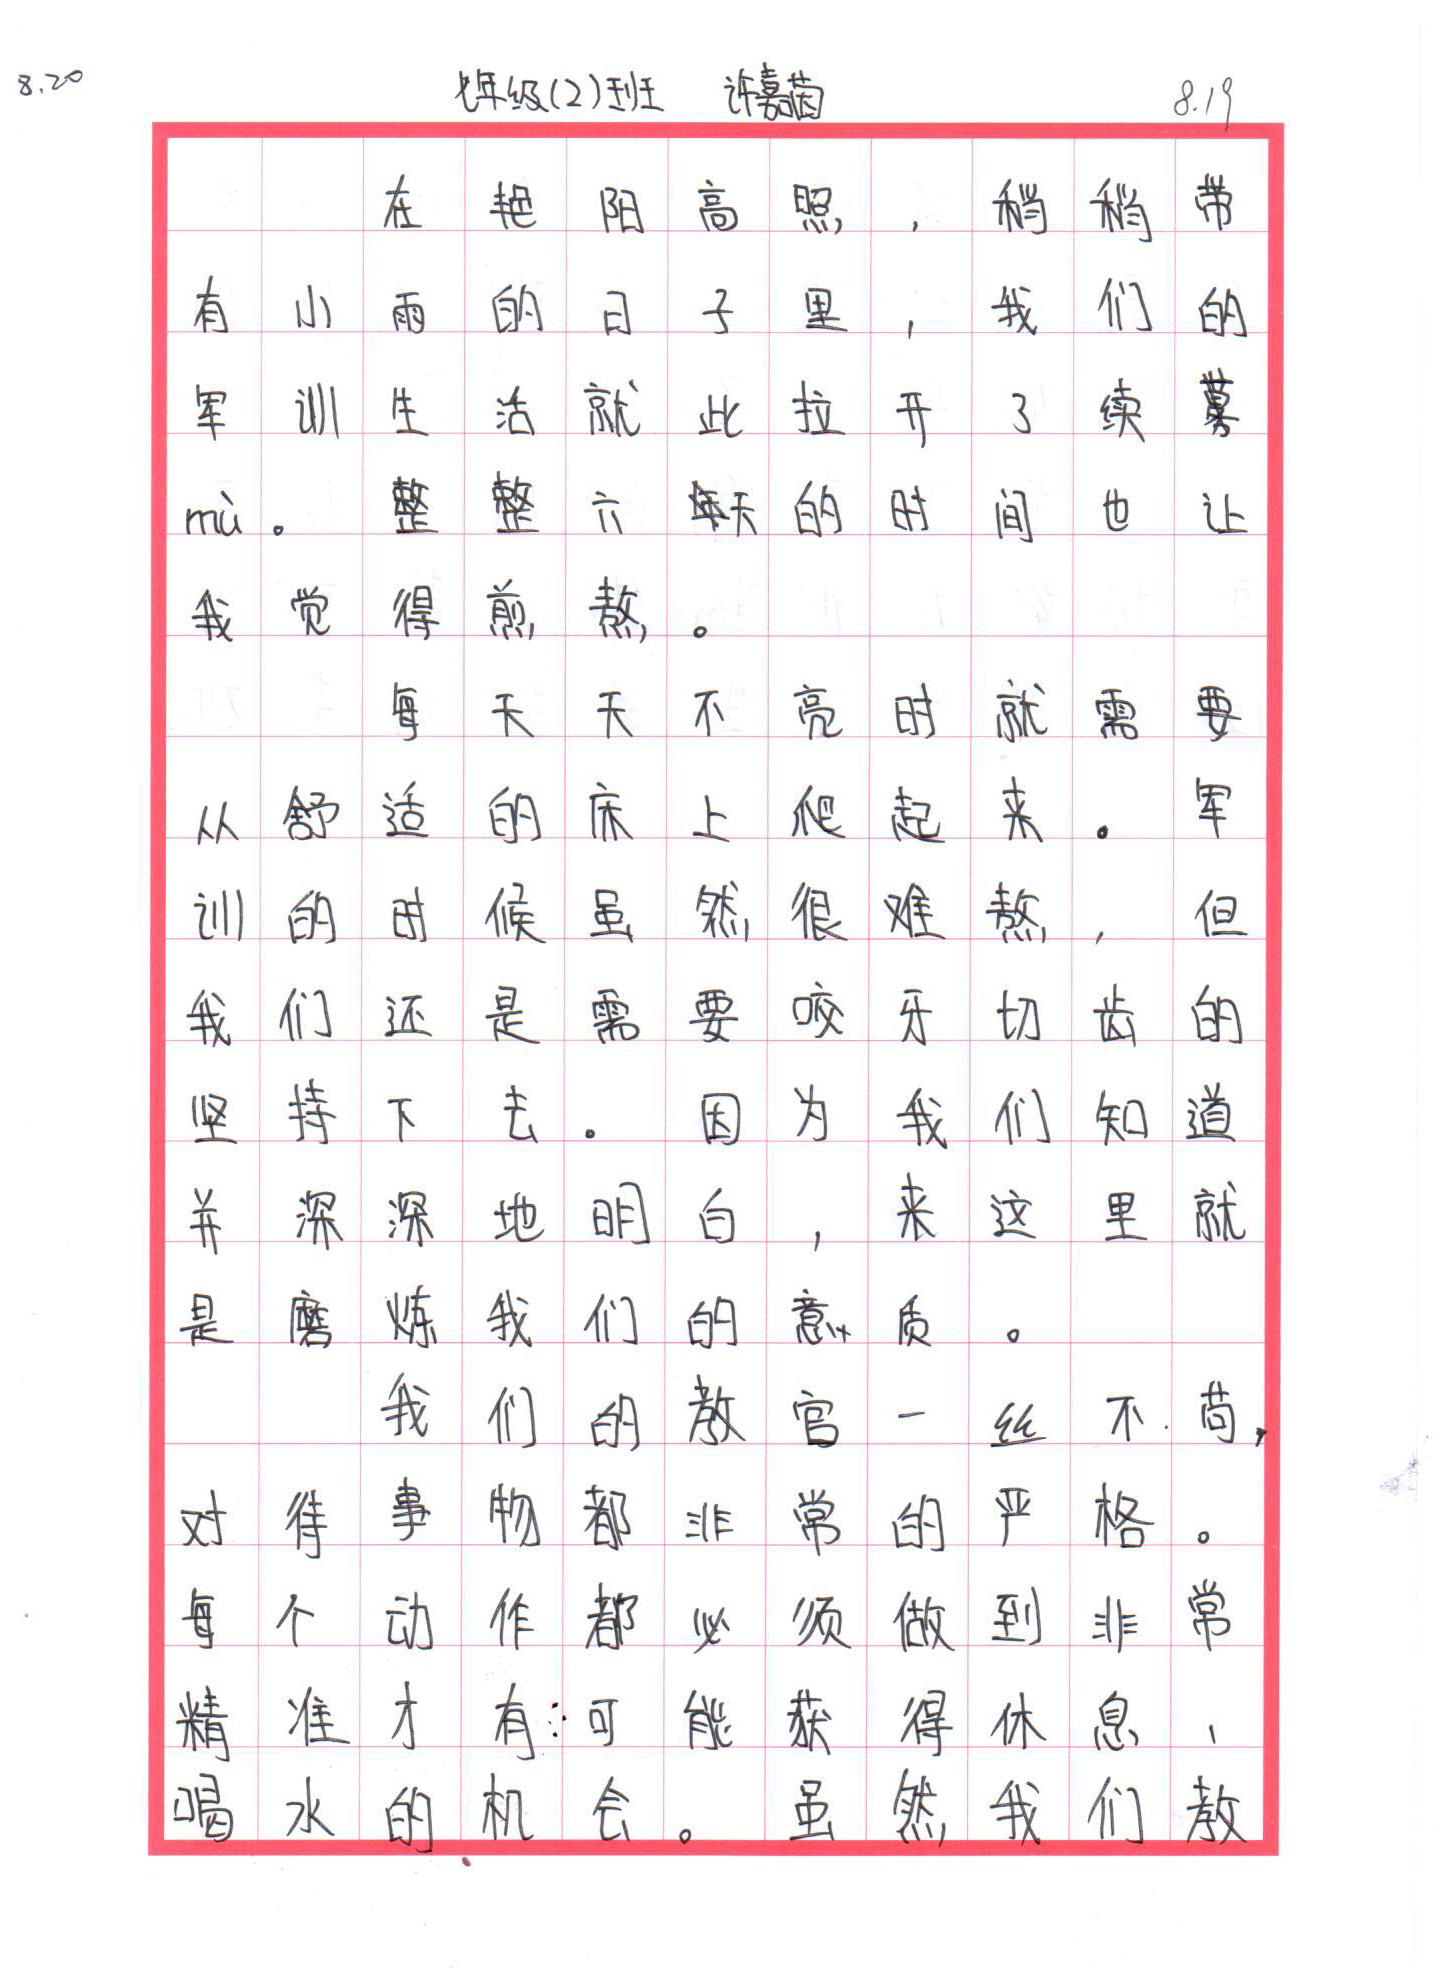 8.20 七年级(2)班 许嘉茵 8.19
在艳阳高照，稍稍带
有小雨的日子里，我们的
军训生活就此拉开了续
mù。整整六天的时间也让
我觉得煎熬。
每天天不亮时就需要
从舒适的床上爬起来。军
训的时候虽然很难熬，但
我们还是需要咬牙切齿的
坚持下去。因为我们知道
并深深地明白，来这里就
是磨炼我们的意质。
我们的教官一丝不苟，
对待事物都非常的严格。
每个动作都必须做到非常
精准才有可能获得休息、
喝水的机会。虽然我们教